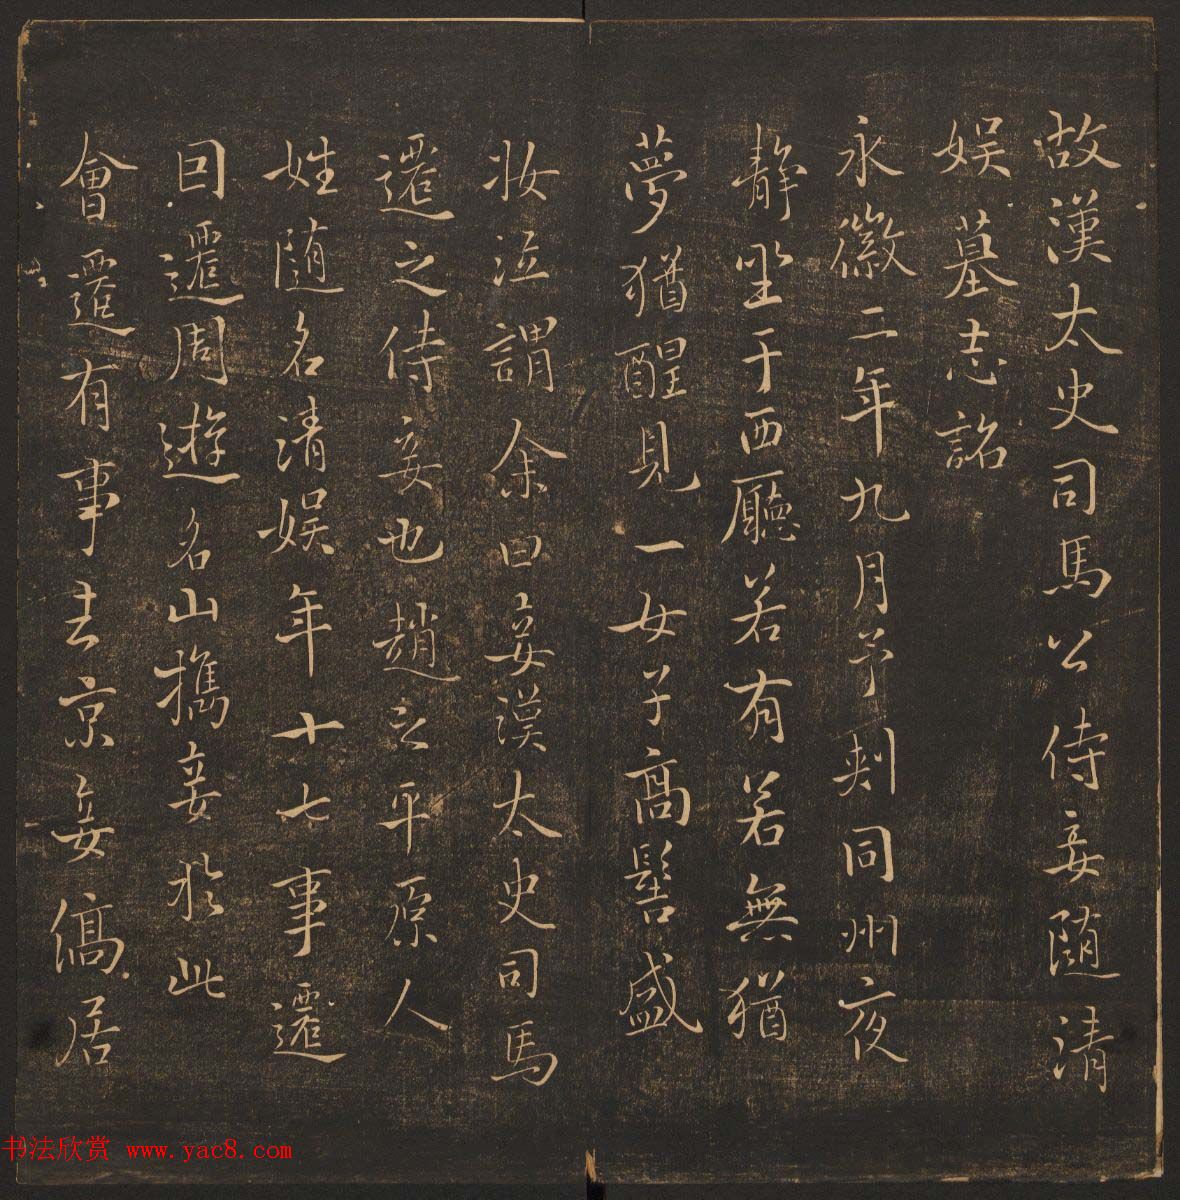 故漢太史司馬公侍妾随清
娱墓志銘
永徽二年九月予刺同州夜
静坐于西廳若有若無猶
夢猶醒見一女子高髻盛
妝泣謂余曰妾漢太史司馬
遷之侍妾也趙之平原人
姓随名清娱年十七事遷
因遷周遊名山攜妾於此
會遷有事去京妾僑居
书法欣赏 www.yac8.com